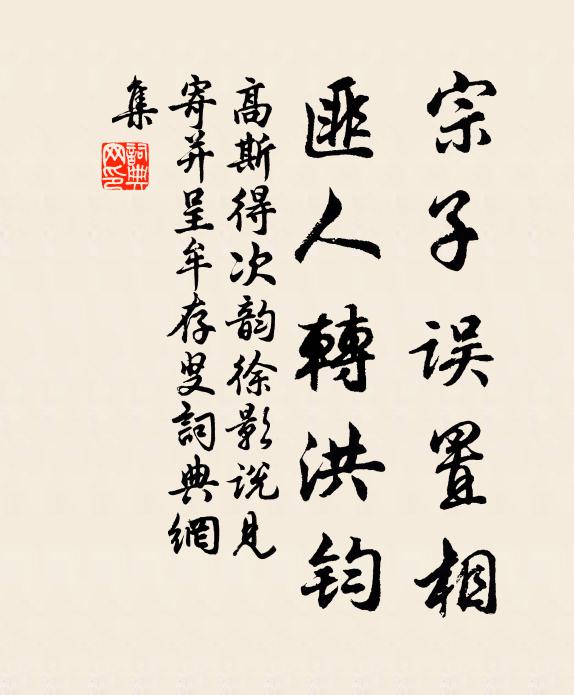 宗子误置相
匪人轉洪钧
高斯得次韵徐影说見
寄并呈牟存叟詞典網
集
詞典网印